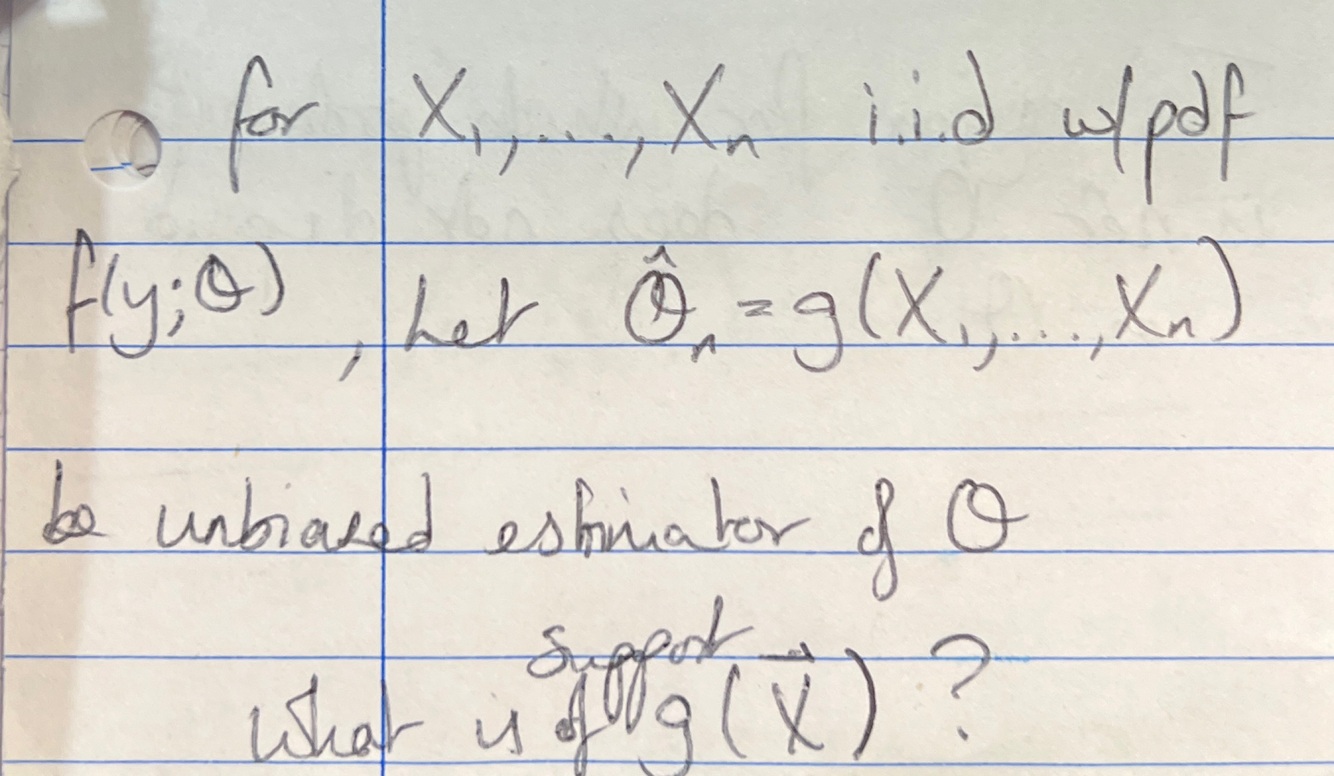 for X₁,...,Xₙ i.i.d w/pdf
f(y;θ), Let θ̂ₙ = g(X₁,...,Xₙ)
be unbiased estimator of θ
support
What is of g(X⃗)?